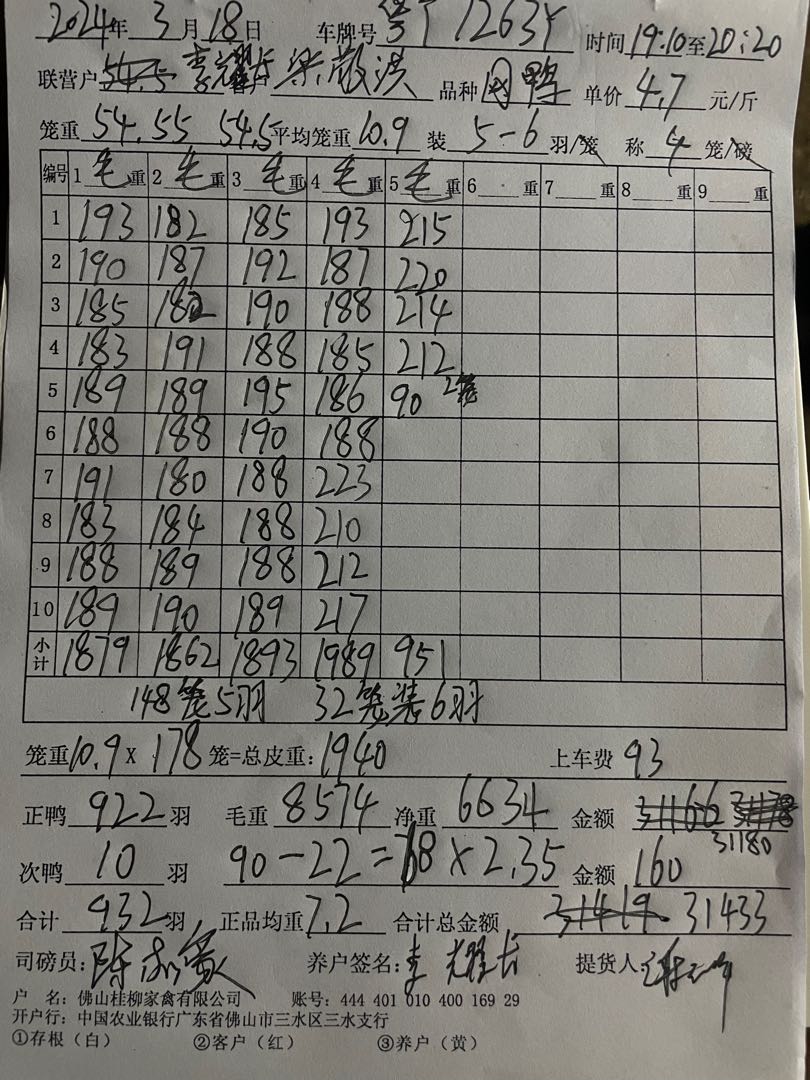 2024年 3月18日 车牌号 粤 T12635 时间 19:10至20:20
联营户 李耀长 梁敬洪 品种 网鸭 单价 4.7 元/斤
笼重 54.55 54.5 平均笼重 10.9 装 5-6 羽/笼 称 4 笼/磅
编号 1 毛 重 2 毛 重 3 毛 重 4 毛 重 5 毛 重 6 重 7 重 8 重 9 重
1 193 182 185 193 215
2 190 187 192 187 220
3 185 182 190 188 214
4 183 191 188 185 212
5 189 189 195 186 90 2笼
6 188 188 190 188
7 191 180 188 223
8 183 184 188 210
9 188 189 188 212
10 189 190 189 217
小计 1879 1862 1893 1989 951
148笼5羽 32笼装6羽
笼重 10.9 x 178 笼=总皮重: 1940 上车费 93
正鸭 922 羽 毛重 8574 净重 6634 金额 31166 31178
31180
次鸭 10 羽 90-22=68×2.35 金额 160
合计 932 羽 正品均重 7.2 合计总金额 31419 31433
司磅员: 养户签名: 李耀长 提货人:
户 名: 佛山桂柳家禽有限公司 账号: 444 401 010 400 169 29
开户行: 中国农业银行广东省佛山市三水区三水支行
①存根(白) ②客户(红) ③养户(黄)